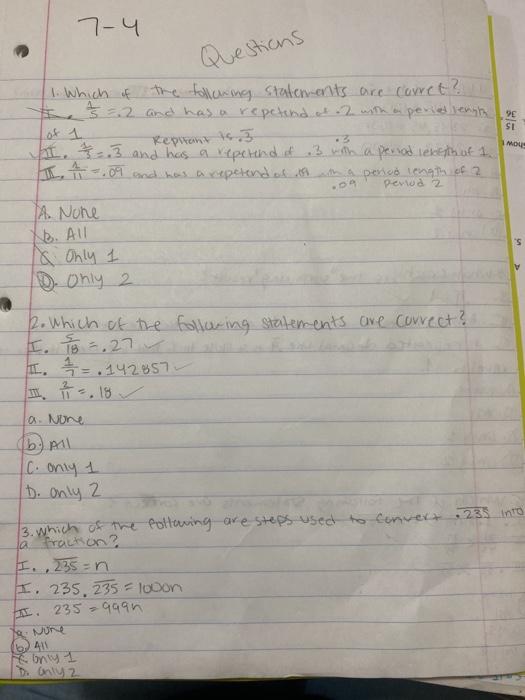 7-4
Questions
1. Which of the following statements are corret?
I. 1/5 = .2 and has a repetend of .2 with a period length
of 1
Repitant is .3̅ .3
II. 1/3 = .3̅ and has a repetend of .3 with a period length of 1
III. 1/11 = .09 and has a repetend of with a period length of 2
.09 period 2
A. None
B. All
C. Only 1
D. Only 2
2. Which of the following statements are correct?
I. 5/18 = .27 ✓
II. 1/7 = .142857 ✓
III. 2/11 = .18 ✓
a. None
b. All
C. only 1
D. only 2
3. Which of the following are steps used to convert .2̅3̅5̅ into
a fraction?
I. .2̅3̅5̅ = n
I. 235.2̅3̅5̅ = 1000n
III. 235 = 999n
a. None
b. All
C. only 1
D. only 2
36
15
Show
5.
A